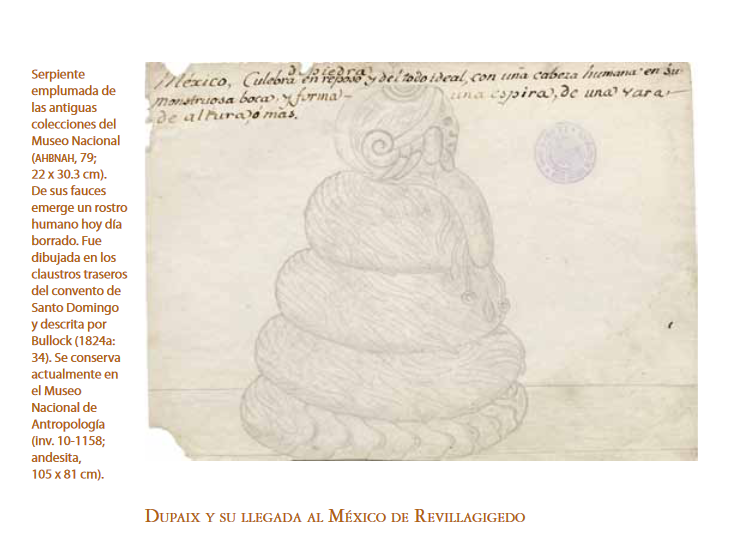 Serpiente
emplumada de
las antiguas
colecciones del
Museo Nacional
(AHBNAH, 79;
22 x 30.3 cm).
De sus fauces
emerge un rostro
humano hoy día
borrado. Fue
dibujada en los
claustros traseros
del convento de
Santo Domingo
y descrita por
Bullock (1824a:
34). Se conserva
actualmente en
el Museo
Nacional de
Antropología
(inv. 10-1158;
andesita,
105 x 81 cm).
de piedra
México, Culebra en reposo y del todo ideal, con uña cabeza humana en su
monstruosa boca, y forma una espira, de una vara
de altura, o mas.
Dupaix y su llegada al México de Revillagigedo